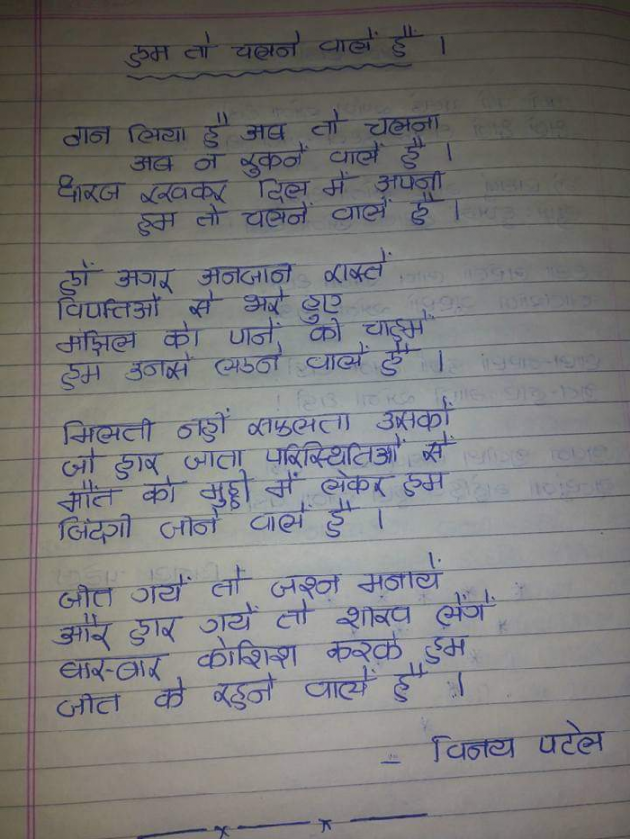 हम तो चलने वालें हैं ।
ठान लिया है अब तो चलना
अब न रुकनें वालें हैं ।
धीरज रखकर दिल में अपनी
हम तो चलनें वालें हैं ।
हों अगर अनजान रास्तें
विपत्तिओं से भरे हुए
मंझिल को पानें की चाहमें
हम उनसे लडने वालें हैं ।
मिलती नहीं सफलता उसकों
जो हार जाता परिस्थितिओं सें
मौत को मुठ्ठी में लेकर हम
जिंदगी जीनें वालें हैं ।
जीत गयें तो जश्न मनायें
और हार गयें तो शीख लेंगें
बार-बार कोशिश करकें हम
जीत के रहनें वालें हैं ।
- विनय पटेल